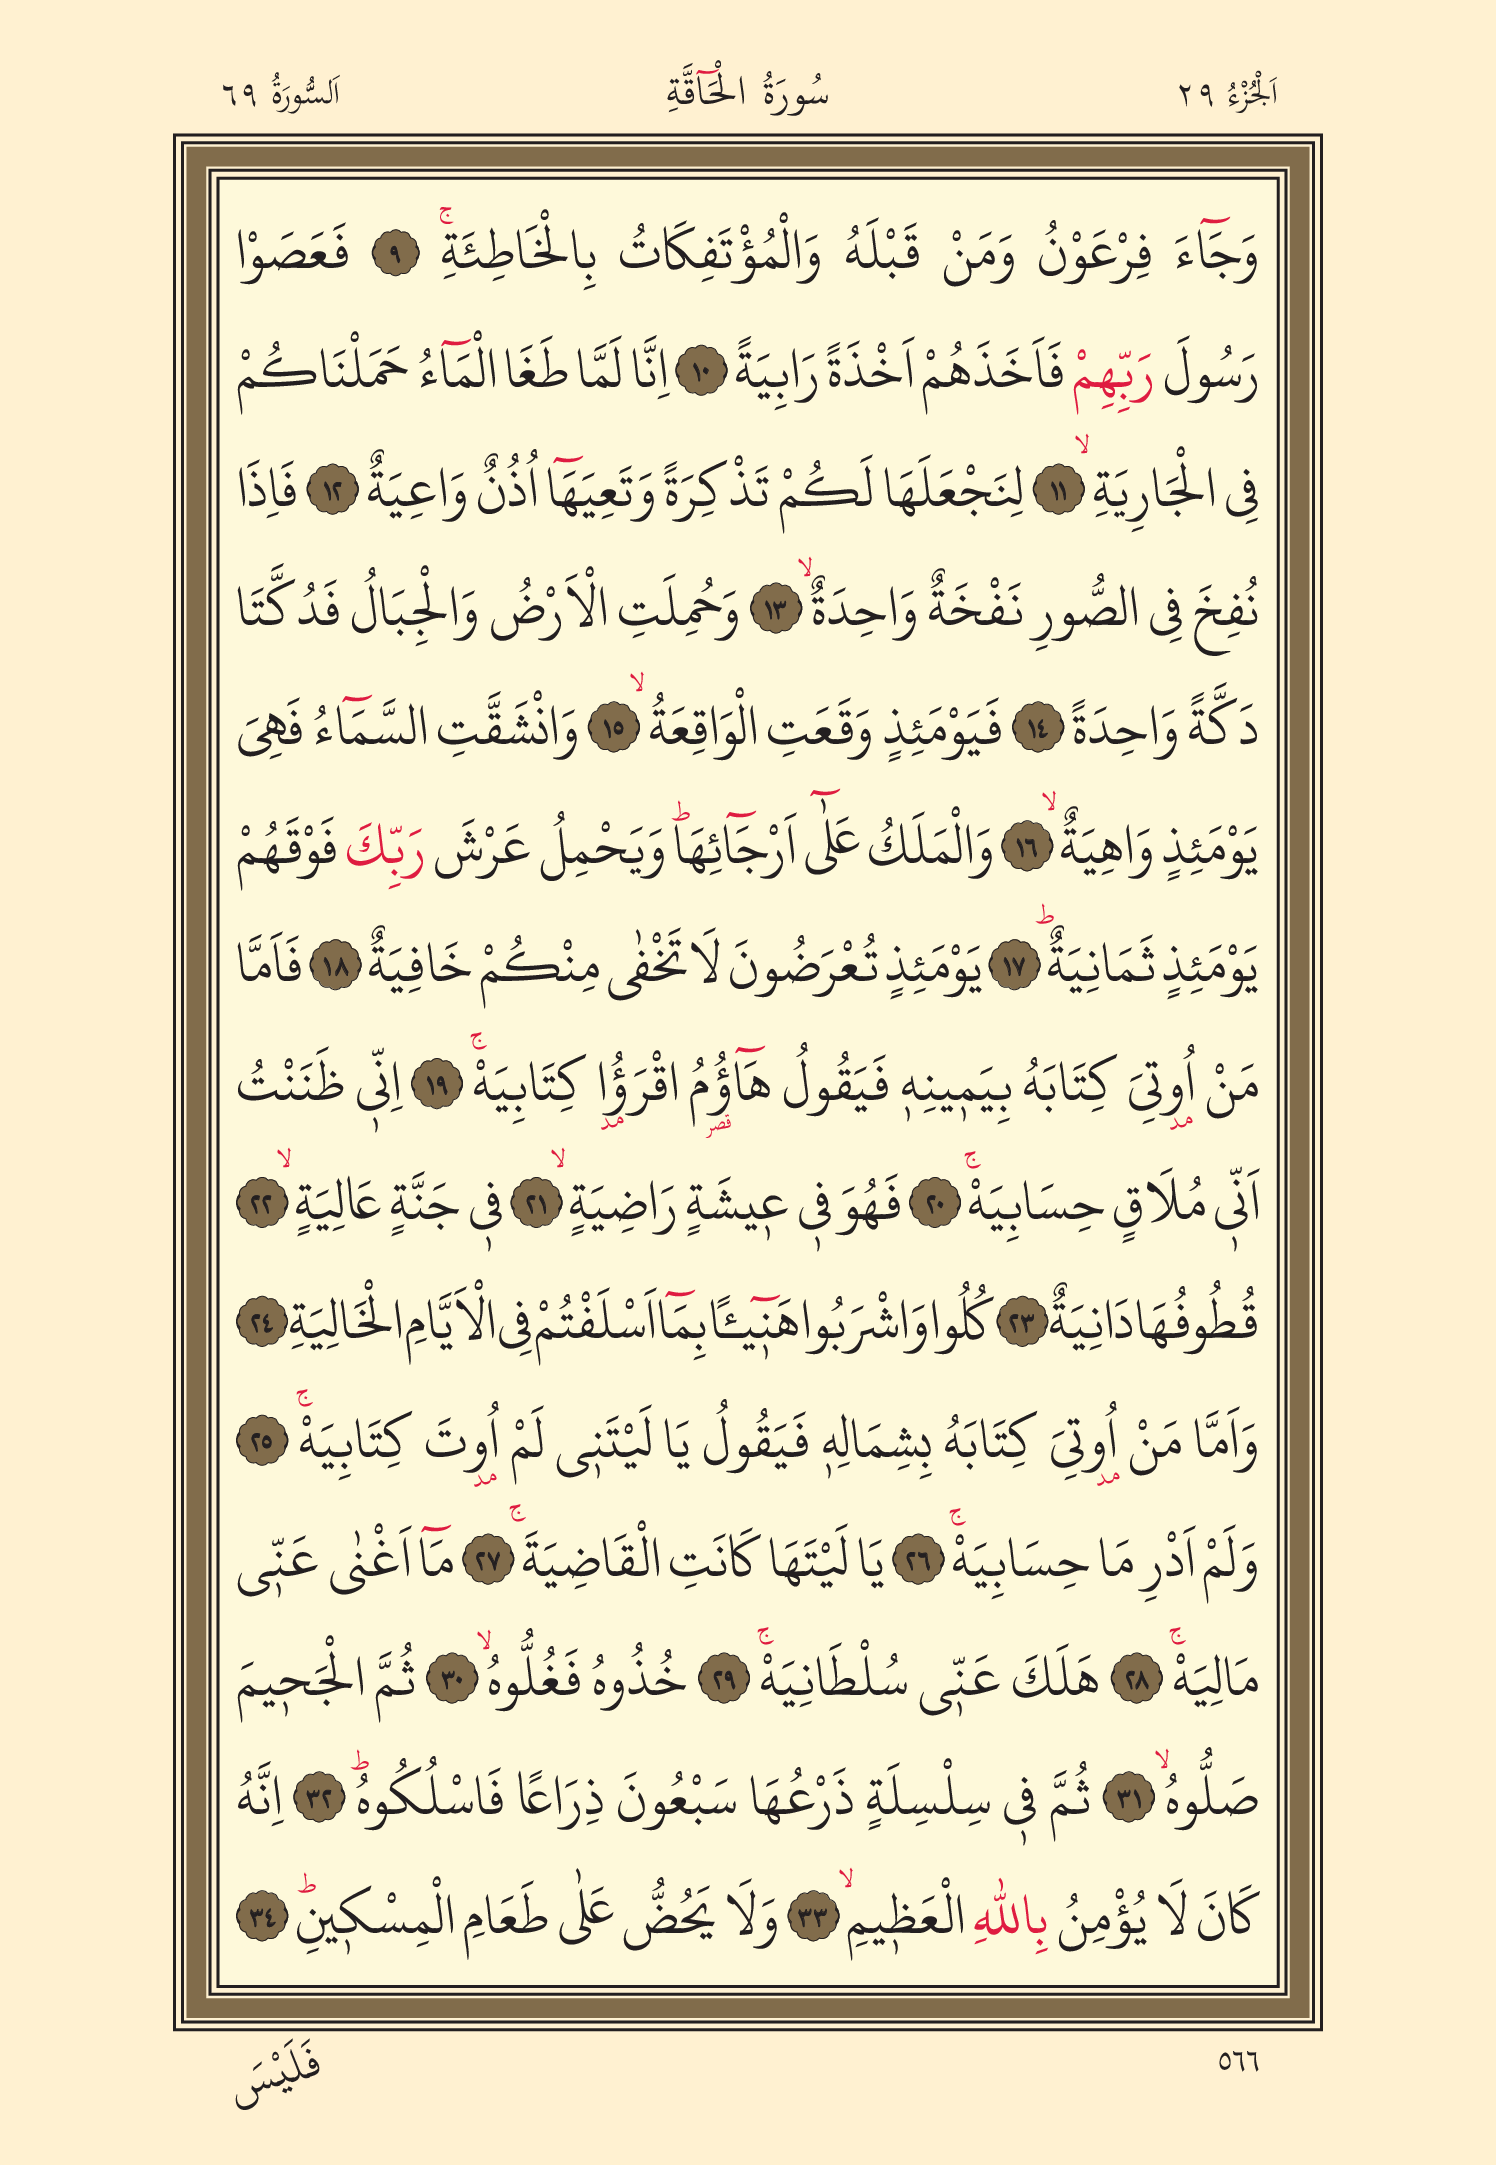 اَلْجُزْءُ ٢٩ سُورَةُ الْحَٓاقَّةِ اَلسُّورَةُ ٦٩
وَجَٓاءَ فِرْعَوْنُ وَمَنْ قَبْلَهُ وَالْمُؤْتَفِكَاتُ بِالْخَاطِئَةِۚ ٩ فَعَصَوْا
رَسُولَ رَبِّهِمْ فَاَخَذَهُمْ اَخْذَةً رَابِيَةً ١٠ اِنَّا لَمَّا طَغَا الْمَٓاءُ حَمَلْنَاكُمْ
فِى الْجَارِيَةِۙ ١١ لِنَجْعَلَهَا لَكُمْ تَذْكِرَةً وَتَعِيَهَٓا اُذُنٌ وَاعِيَةٌ ١٢ فَاِذَا
نُفِخَ فِى الصُّورِ نَفْخَةٌ وَاحِدَةٌۙ ١٣ وَحُمِلَتِ الْاَرْضُ وَالْجِبَالُ فَدُكَّتَا
دَكَّةً وَاحِدَةً ١٤ فَيَوْمَئِذٍ وَقَعَتِ الْوَاقِعَةُۙ ١٥ وَانْشَقَّتِ السَّمَٓاءُ فَهِىَ
يَوْمَئِذٍ وَاهِيَةٌۙ ١٦ وَالْمَلَكُ عَلٰٓى اَرْجَٓائِهَاۜ وَيَحْمِلُ عَرْشَ رَبِّكَ فَوْقَهُمْ
يَوْمَئِذٍ ثَمَانِيَةٌۜ ١٧ يَوْمَئِذٍ تُعْرَضُونَ لَا تَخْفٰى مِنْكُمْ خَافِيَةٌ ١٨ فَاَمَّا
مَنْ اُو۫تِىَ كِتَابَهُ بِيَمٖينِهٖ فَيَقُولُ هَٓاؤُ۬مُ اقْرَؤُ۫ا كِتَابِيَهْۚ ١٩ اِنّٖى ظَنَنْتُ
اَنّٖى مُلَاقٍ حِسَابِيَهْۚ ٢٠ فَهُوَ فٖى عٖيشَةٍ رَاضِيَةٍۙ ٢١ فٖى جَنَّةٍ عَالِيَةٍۙ ٢٢
قُطُوفُهَا دَانِيَةٌ ٢٣ كُلُوا وَاشْرَبُوا هَنٖٓيـًٔا بِمَٓا اَسْلَفْتُمْ فِى الْاَيَّامِ الْخَالِيَةِ ٢٤
وَاَمَّا مَنْ اُو۫تِىَ كِتَابَهُ بِشِمَالِهٖ فَيَقُولُ يَا لَيْتَنٖى لَمْ اُو۫تَ كِتَابِيَهْۚ ٢٥
وَلَمْ اَدْرِ مَا حِسَابِيَهْۚ ٢٦ يَا لَيْتَهَا كَانَتِ الْقَاضِيَةَۚ ٢٧ مَٓا اَغْنٰى عَنّٖى
مَالِيَهْۚ ٢٨ هَلَكَ عَنّٖى سُلْطَانِيَهْۚ ٢٩ خُذُوهُ فَغُلُّوهُۙ ٣٠ ثُمَّ الْجَحٖيمَ
صَلُّوهُۙ ٣١ ثُمَّ فٖى سِلْسِلَةٍ ذَرْعُهَا سَبْعُونَ ذِرَاعًا فَاسْلُكُوهُۜ ٣٢ اِنَّهُ
كَانَ لَا يُؤْمِنُ بِاللّٰهِ الْعَظٖيمِۙ ٣٣ وَلَا يَحُضُّ عَلٰى طَعَامِ الْمِسْكٖينِۜ ٣٤
٥٦٦ فَلَيْسَ